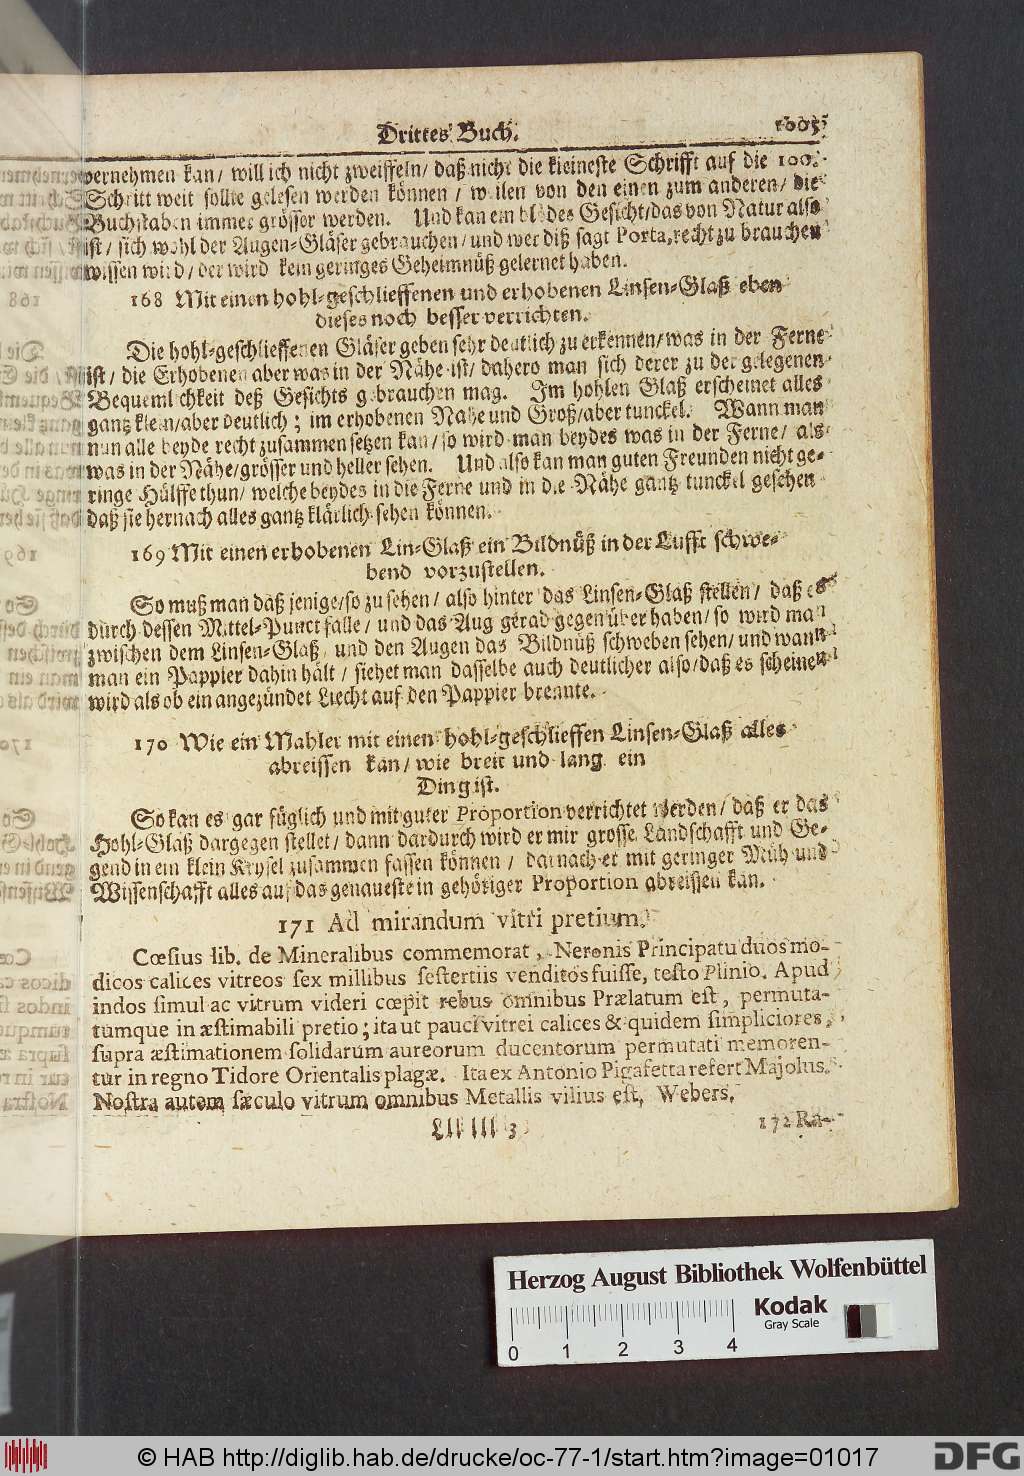 Drittes Buch. 1005
vernehmen kan/ will ich nicht zweiffeln/ daß nicht die kleineste Schrifft auf die 100.
Schritt weit solte gelesen werden können / weilen von den einen zum anderen/ die
Buchstaben immer grösser werden. Und kan ein blödes Gesicht/das von Natur also
ist/ sich wohl der Augen-Gläser gebrauchen/und wer diß sagt Porta, recht zu brauchen
wissen wird/ der wird kein geringes Geheimnüß gelernet haben.
168 Mit einen hohl-geschlieffenen und erhobenen Linsen-Glaß eben
dieses noch besser verrichten.
Die hohl-geschlieffenen Gläser geben sehr deutlich zu erkennen/was in der Ferne
ist/ die Erhobenen aber was in der Nähe ist/ dahero man sich derer zu der gelegenen
Bequemlichkeit deß Gesichts gebrauchen mag. Im hohlen Glaß erscheinet alles
gantz klein/aber deutlich; im erhobenen Nahe und Groß/aber tunckel. Wann man
nun alle beyde recht zusammen setzen kan/ so wird man beydes was in der Ferne/ als
was in der Nähe/grösser und heller sehen. Und also kan man guten Freunden nicht ge-
ringe Hülffe thun/ welche beydes in die Ferne und in die Nähe gantz tunckel gesehen
daß sie hernach alles gantz klärlich sehen können.
169 Mit einen erhobenen Lin-Glaß ein Bildnüß in der Lufft schwe-
bend vorzustellen.
So muß man daß jenige/so zu sehen/ also hinter das Linsen-Glaß stellen/ daß es
durch dessen Mittel-Punct falle/ und das Aug gerad gegen über haben/ so wird man
zwischen dem Linsen-Glaß und den Augen das Bildnüß schweben sehen/ und wann
man ein Pappier dahin hält/ siehet man dasselbe auch deutlicher also/daß es scheinen
wird als ob ein angezündet Liecht auf den Pappier brennte.
170 Wie ein Mahler mit einen hohl-geschlieffen Linsen-Glaß alles
abreissen kan/ wie breit und lang ein
Ding ist.
So kan es gar füglich und mit guter Proportion verrichtet werden/ daß er das
Hohl-Glaß dargegen stellet/ dann dardurch wird er mir grosse Landschafft und Ge-
gend in ein klein Kreysel zusammen fassen können / darnach er mit geringer Müh und
Wissenschafft alles auf das genaueste in gehöriger Proportion abreissen kan.
171 Ad mirandum vitri pretium.
Cœsius lib. de Mineralibus commemorat, Neronis Principatu duos mo-
dicos calices vitreos sex millibus sestertiis venditos fuisse, testo Plinio. Apud
indos simul ac vitrum videri cœpit rebus omnibus Prælatum est, permuta-
tumque in æstimabili pretio; ita ut pauci vitrei calices & quidem simpliciores,
supra æstimationem solidarum aureorum ducentorum permutati memoren-
tur in regno Tidore Orientalis plagæ. Ita ex Antonio Pigafetta refert Majolus.
Nostra autem sæculo vitrum omnibus Metallis vilius est, Webers.
Lll lll 3 172 Ra-
Herzog August Bibliothek Wolfenbüttel
Kodak
Gray Scale
0 1 2 3 4
© HAB http://diglib.hab.de/drucke/oc-77-1/start.htm?image=01017
DFG